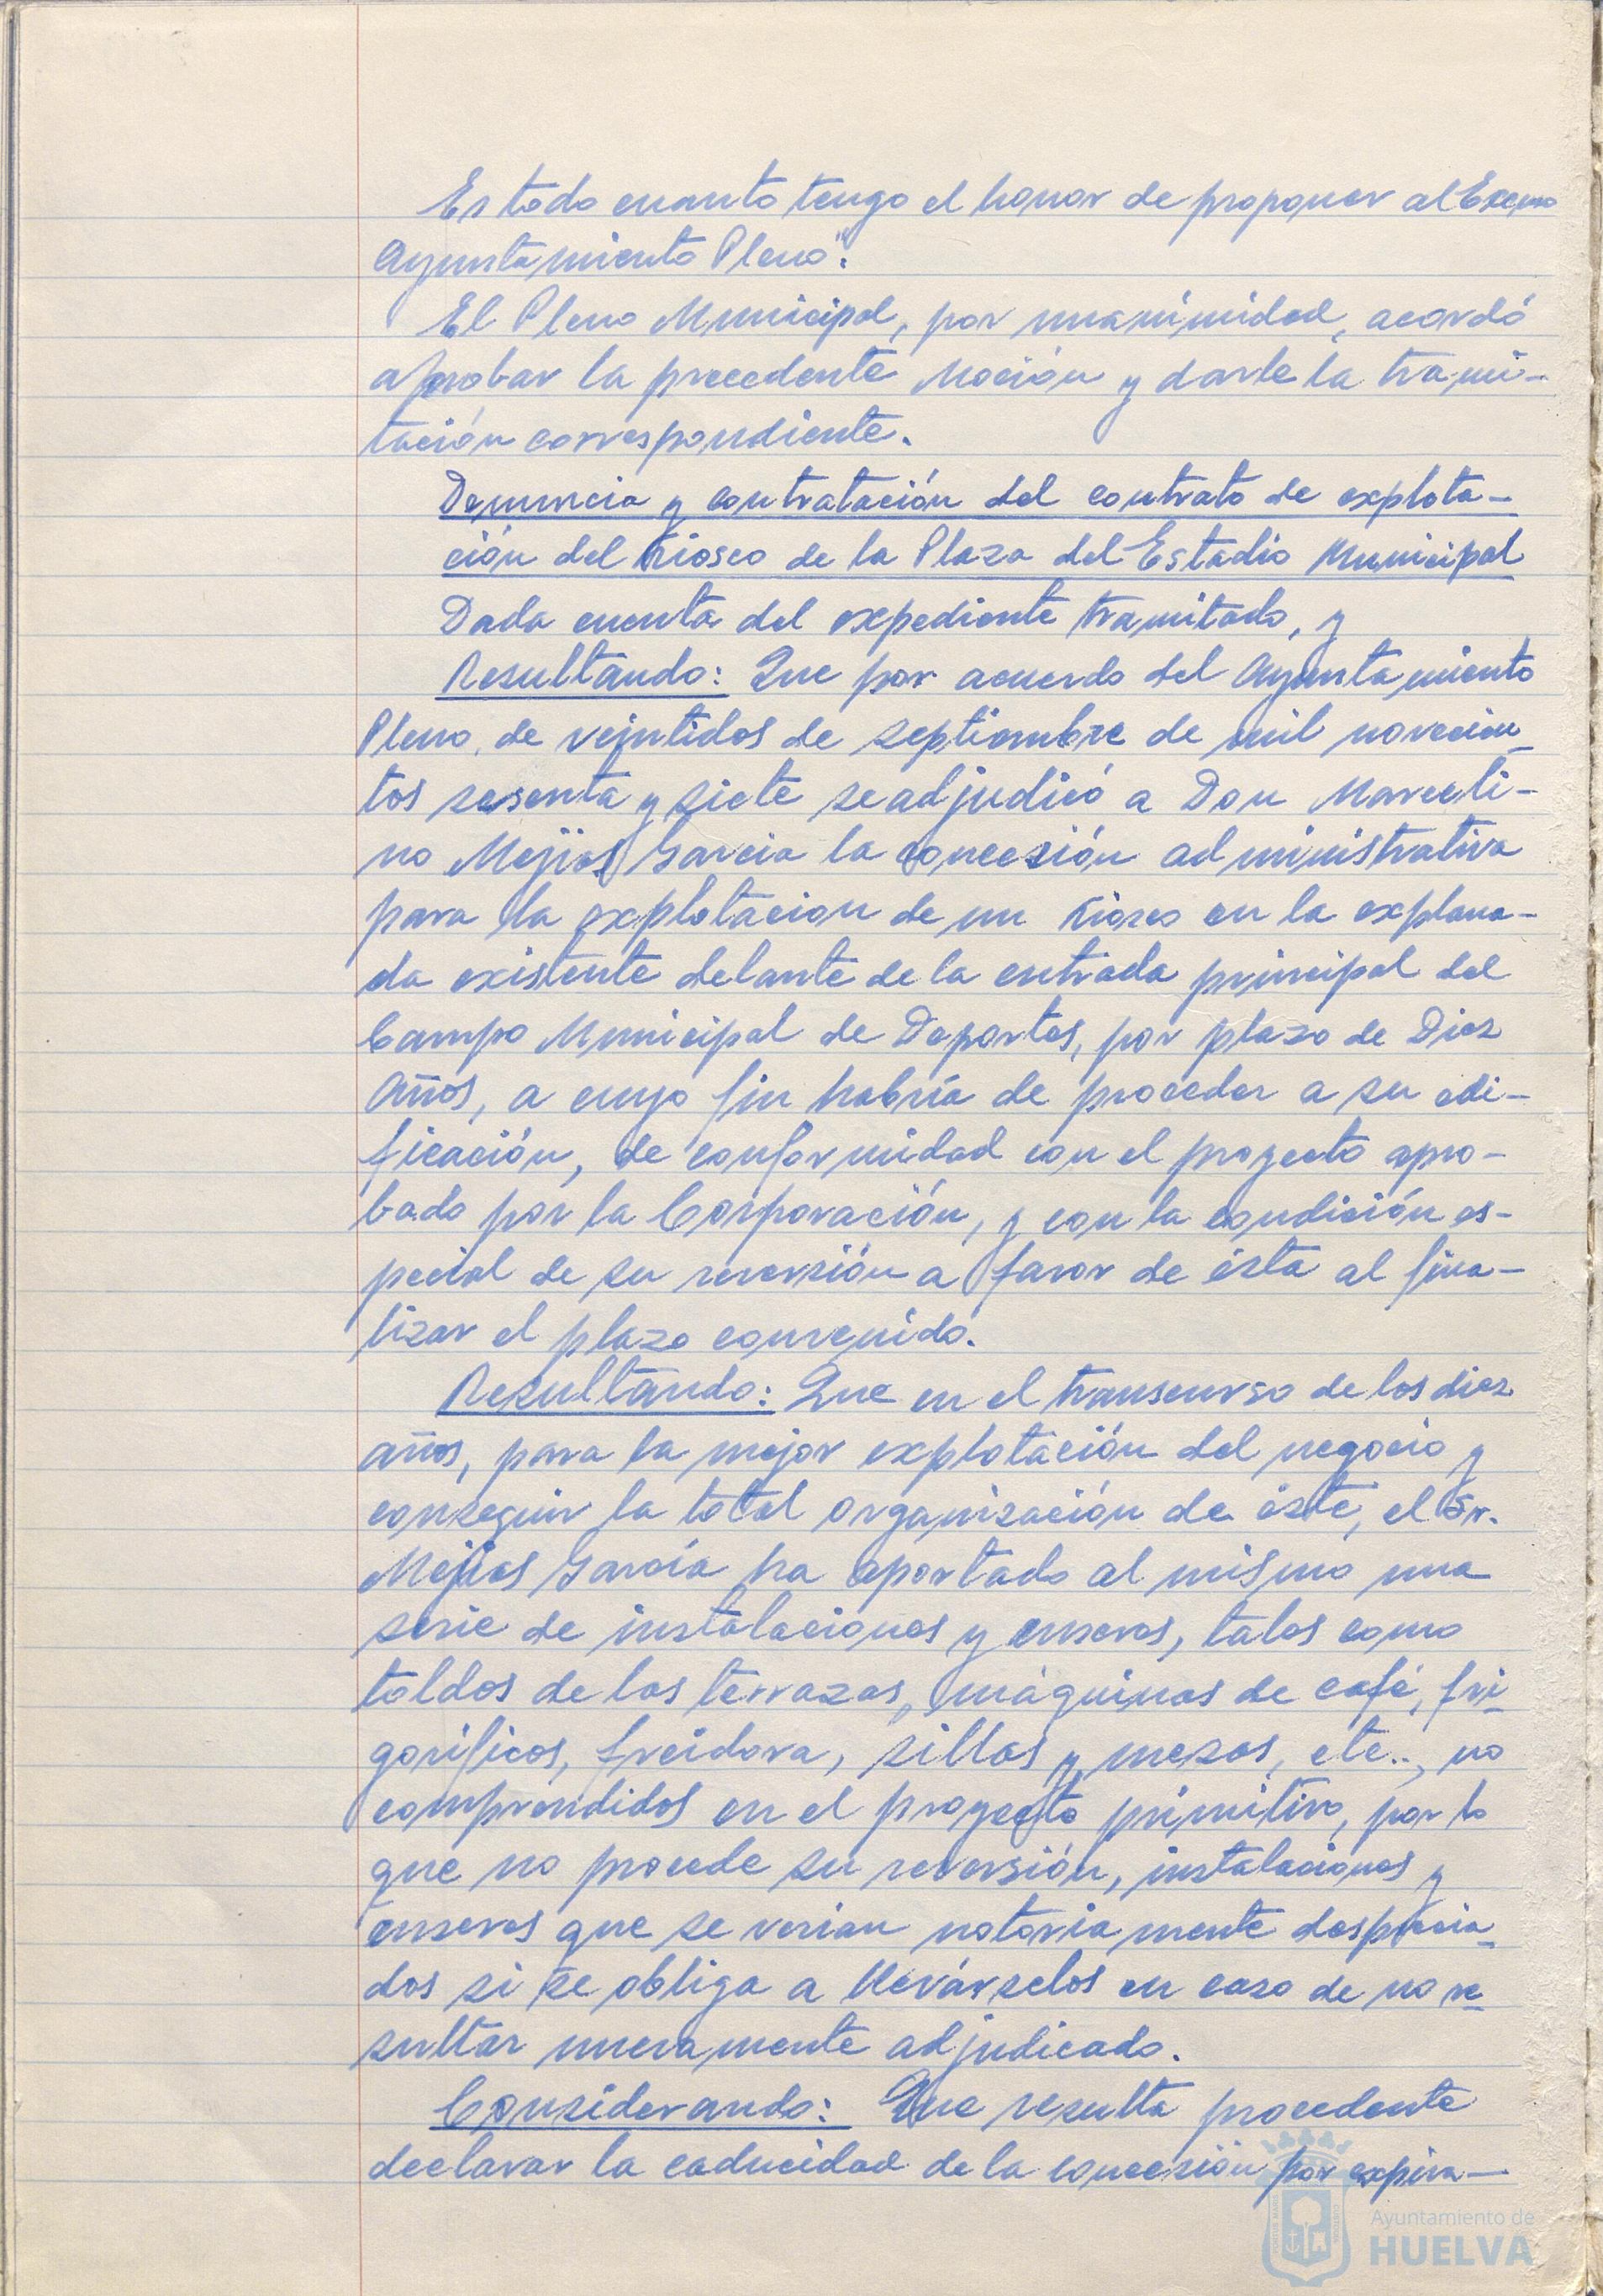 Es todo cuanto tengo el honor de proponer al Excmo
Ayuntamiento Pleno".
El Pleno Municipal, por unanimidad, acordó
aprobar la precedente Moción y darle la trami-
tación correspondiente.
Denuncia y contratación del contrato de explota-
ción del Kiosco de la Plaza del Estadio Municipal
Dada cuenta del expediente tramitado, y
Resultando: Que por acuerdo del Ayuntamiento
Pleno, de veintidos de septiembre de mil novecien-
tos sesenta y siete se adjudicó a Don Marceli-
no Mejias Garcia la concesión administrativa
para la explotacion de un Kiosco en la explana-
da existente delante de la entrada principal del
Campo Municipal de Deportes, por plazo de Diez
Años, a cuyo fin habría de proceder a su edi-
ficación, de conformidad con el proyecto apro-
bado por la Corporación, y con la condición es-
pecial de su reversión a favor de ésta al fina-
lizar el plazo convenido.
Resultando: Que en el transcurso de los diez
años, para la mejor explotación del negocio y
conseguir la total organización de éste, el Sr.
Mejias García ha aportado al mismo una
serie de instalaciones y enseres, tales como
toldos de las terrazas, máquinas de café, fri-
gorificos, freidora, sillas y mesas, etc.., no
comprendidos en el proyecto primitivo, por lo
que no procede su reversión, instalaciones y
enseres que se verian notoriamente desprecia-
dos si se obliga a llevárselos en caso de no re-
sultar nuevamente adjudicado.
Considerando: Que resulta procedente
declarar la caducidad de la concesión por expira-
Ayuntamiento de
HUELVA